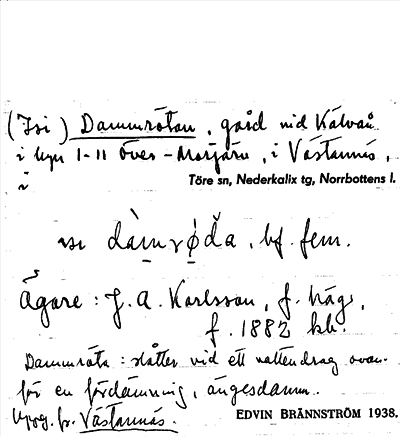 (Isi) Dammrötan, gård vid Kälvån
i byn 1-11 Över-Morjärv, i Västannäs,
i
Töre sn, Nederkalix tg, Norrbottens l.
dàmrǿda, bf. fem.
Ägare: J. A. Karlsson, f. häg.,
f. 1882 kh.
Dammröta: slåtter vid ett vattendrag ovan-
för en fördämning, ängesdamm.
Uppg. fr. Västannäs.
EDVIN BRÄNNSTRÖM 1938.